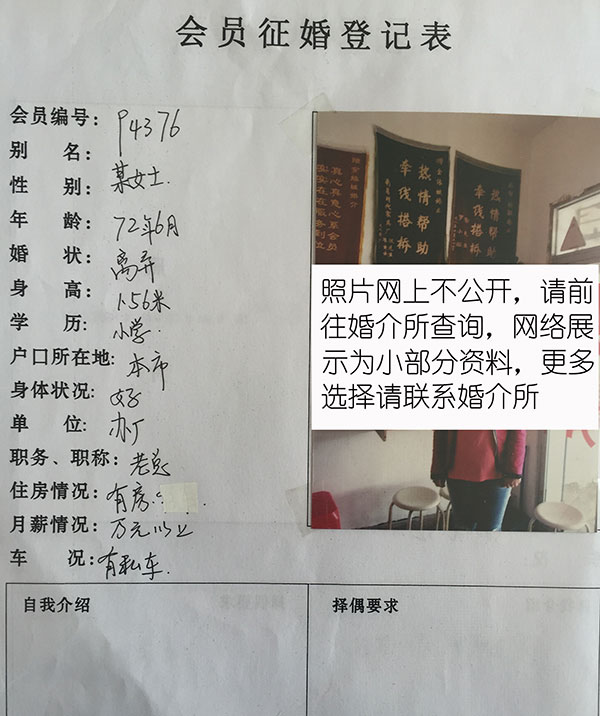 会员征婚登记表
会员编号: P4376
别 名: 某女士.
性 别:
年 龄: 72年6月
婚 状: 离异
身 高: 1.56米
学 历: 小学.
户口所在地: 本市
身体状况: 好
单 位: 办厂
职务、职称: 老总
住房情况: 有房.
月薪情况: 万元以上
车 况: 有私车.
热情帮助
牵线搭桥
热情帮助
牵线搭桥
照片网上不公开，请前
往婚介所查询，网络展
示为小部分资料，更多
选择请联系婚介所
自我介绍
择偶要求